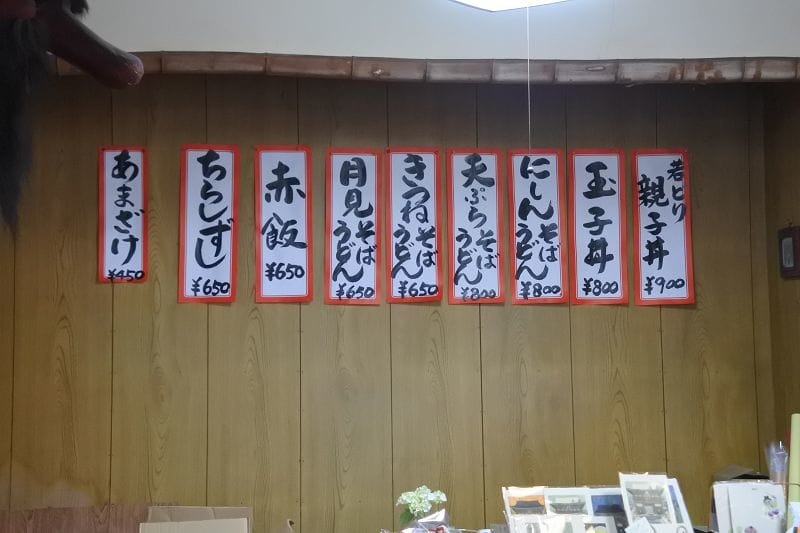 若とり
親子丼
¥900
玉子丼
¥800
にしんそば
うどん
¥800
天ぷらそば
うどん
¥800
きつねそば
うどん
¥650
月見そば
うどん
¥650
赤飯
¥650
ちらしずし
¥650
あまざけ
¥450